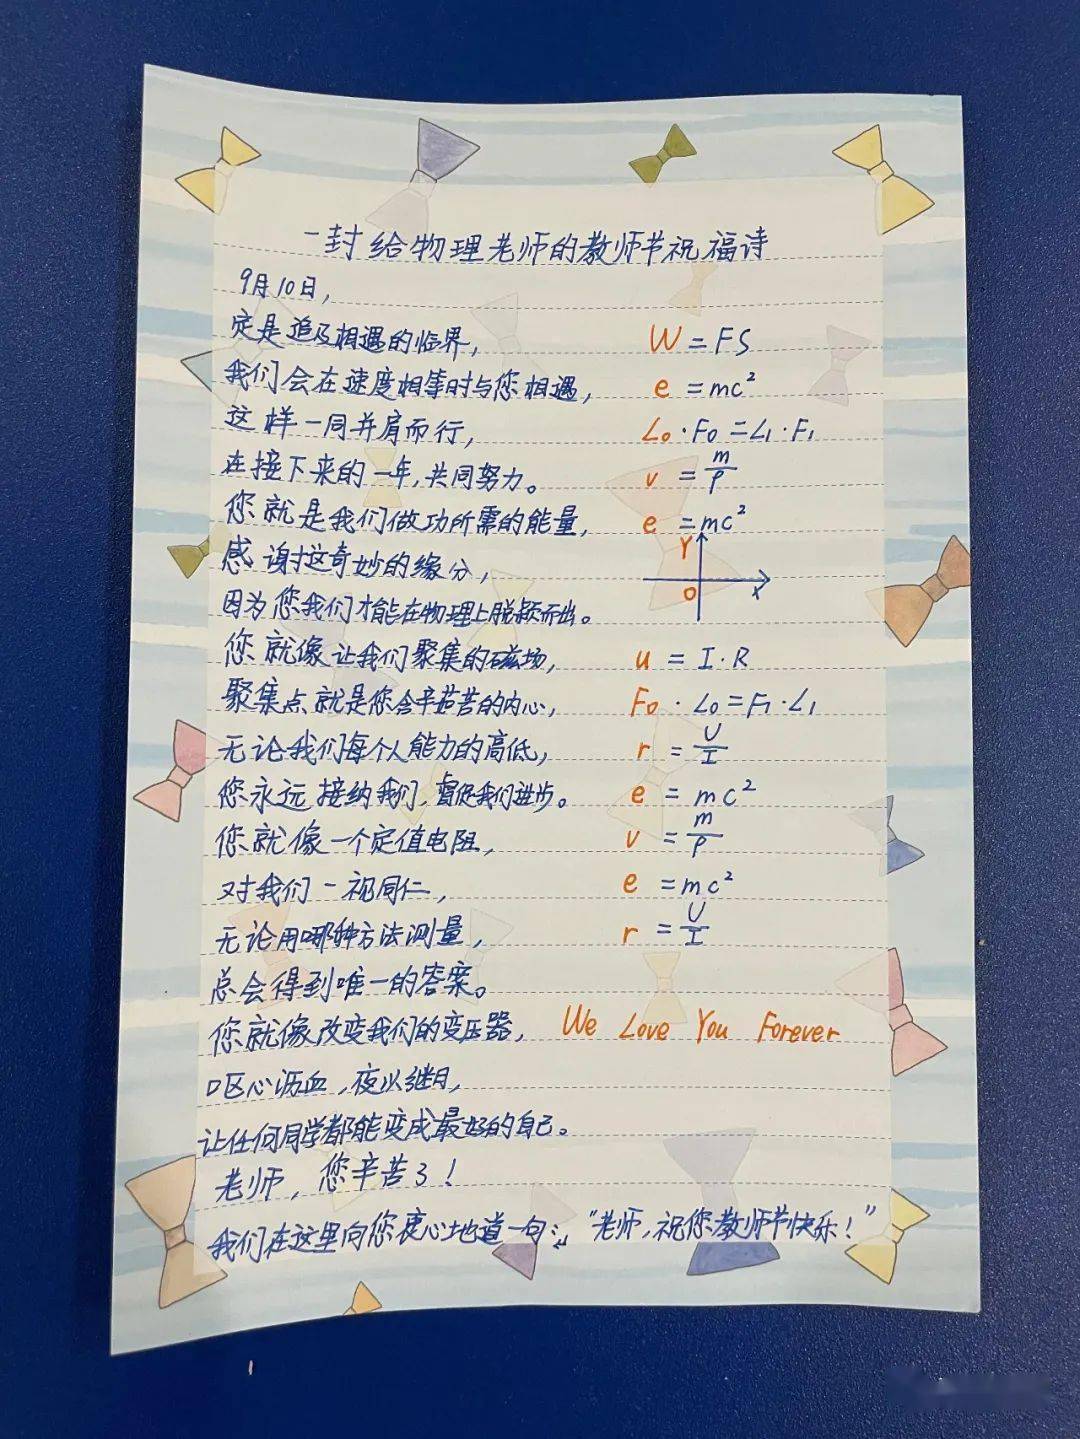 一封给物理老师的教师节祝福诗
9月10日，
定是追及相遇的临界， W = FS
我们会在速度相等时与您相遇， e = mc²
这样一同并肩而行， L₀·F₀=L₁·F₁
在接下来的一年，共同努力。 v = m/ρ
您就是我们做功所需的能量， e = mc²
感谢这奇妙的缘分， Y O X
因为您我们才能在物理上脱颖而出。
您就像让我们聚集的磁场， u = I·R
聚集点就是您含辛茹苦的内心， F₀·L₀=F₁·L₁
无论我们每个人能力的高低， r = U/I
您永远接纳我们，督促我们进步。 e = mc²
您就像一个定值电阻， v = m/ρ
对我们一视同仁， e = mc²
无论用哪种方法测量， r = U/I
总会得到唯一的答案。
您就像改变我们的变压器， We Love You Forever
呕心沥血，夜以继日，
让任何同学都能变成最好的自己。
老师，您辛苦了！
我们在这里向您衷心地道一句：“老师，祝您教师节快乐！”